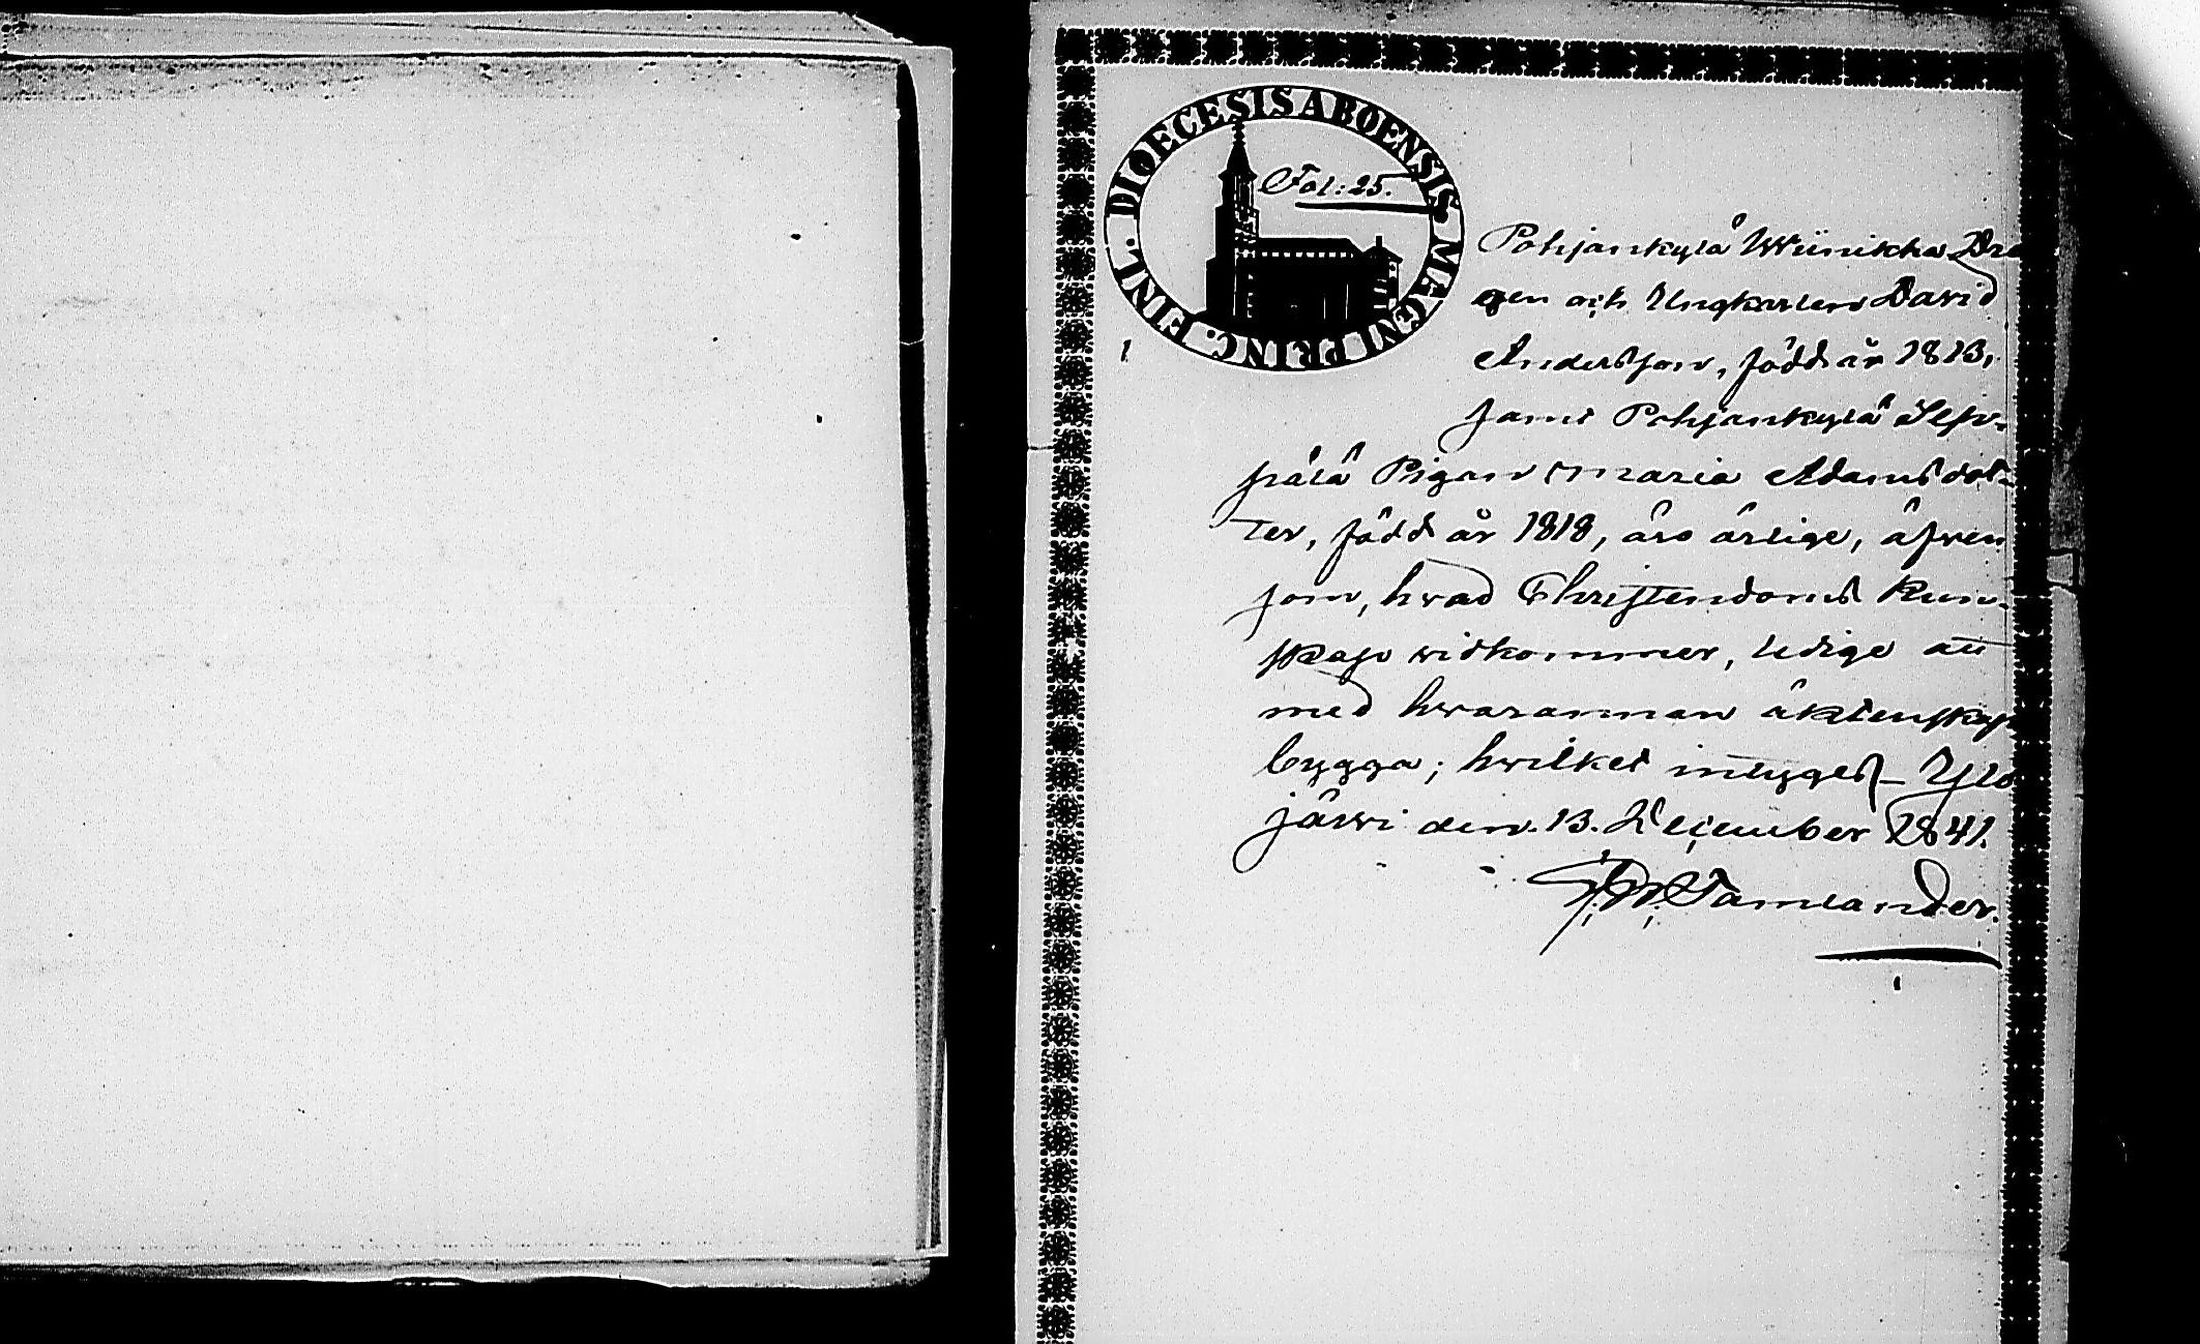 DIOECESIS ABOENSIS MAGNI PRINC. FINL.
Fol: 25.
Pohjankylä Wiinikka Dre
gen och Ungkarlen David
Andersson, född år 1813,
samt Pohjankylä
Pigan Maria Adamsdot-
ter, född år 1818, äro ärlige, äfven
som, hvad Christendoms kun-
skap vidkommer, ledige att
med hvarannan äktenskap
bygga; hvilket intygas Ylö
järvi den 13. December 1841.
Tamlander.